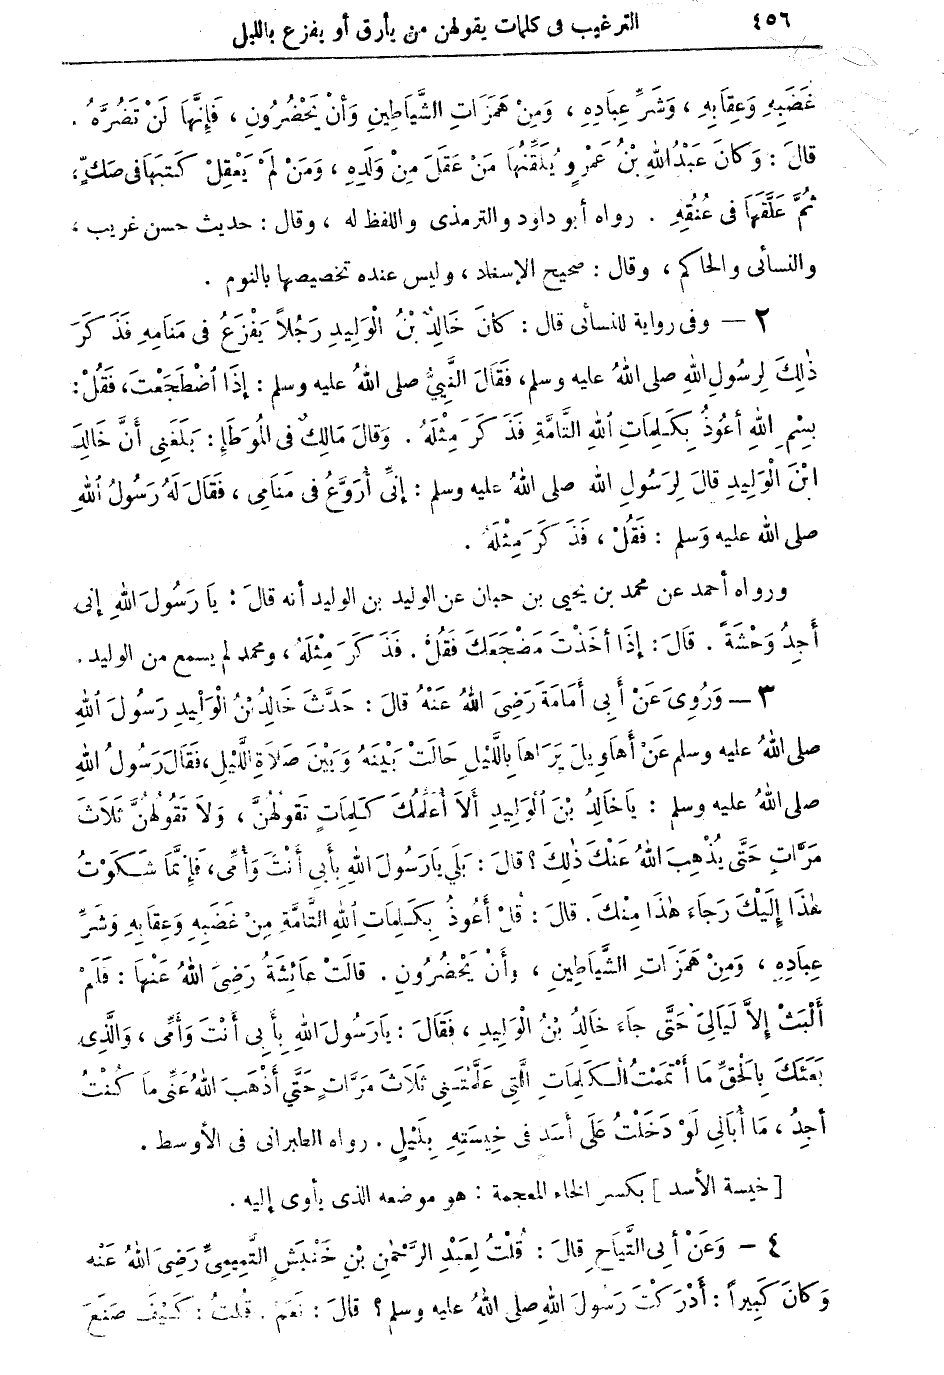 ٤٥٦ الترغيب فى كلمات يقولهن من يأرق أو يفزع بالليل
غَضَبِهِ وَعِقَابِهِ ، وَشَرِّ عِبَادِهِ ، وَمِنْ هَمَزَاتِ الشَّيَاطِينِ وَأَنْ يَحْضُرُونِ ، فَإِنَّهَا لَنْ تَضُرَّهُ .
قالَ : وَكَانَ عَبْدُ اللهِ بْنُ عَمْرٍو يُلَقِّنُهَا مَنْ عَقَلَ مِنْ وَلَدِهِ ، وَمَنْ لَمْ يَعْقِلْ كَتَبَهَا فى صَكٍّ ،
ثُمَّ عَلَّقَهَا فى عُنُقِهِ . رواه أبو داود والترمذى واللفظ له ، وقال : حديث حسن غريب ،
والنسائى والحاكم ، وقال : صحيح الإسناد ، وليس عنده تخصيصها بالنوم .
٢ — وفى رواية للنسائى قال : كَانَ خَالِدُ بْنُ الْوَلِيدِ رَجُلاً يَفْزَعُ فى مَنَامِهِ فَذَكَرَ
ذٰلِكَ لِرَسُولِ اللهِ صلى اللهُ عليه وسلم، فَقَالَ النَّبِيُّ صلى اللهُ عليه وسلم : إِذَا اضْطَجَعْتَ، فَقُلْ :
بِسْمِ اللهِ أَعُوذُ بِكَلِمَاتِ اللهِ التَّامَّةِ فَذَكَرَ مِثْلَهُ . وَقَالَ مَالِكٌ فى المُوَطَّإِ : بَلَغَنِى أَنَّ خَالِدَ
ابْنَ الْوَلِيدِ قَالَ لِرَسُولِ اللهِ صلى اللهُ عليه وسلم : إِنِّى أُرَوَّعُ فى مَنَامِى ، فَقَالَ لَهُ رَسُولُ اللهِ
صلى الله عليه وَسلم : فَقُلْ ، فَذَكَرَ مِثْلَهُ .
ورواه أحمد عن محمد بن يحيى بن حبان عن الوليد بن الوليد أنه قالَ : يَا رَسُولَ اللهِ إِنى
أَجِدُ وَحْشَةً . قَالَ : إِذَا أَخَذْتَ مَضْجَعَكَ فَقُلْ . فَذَكَرَ مِثْلَهُ ، ومحمد لم يسمع من الوليد .
٣ — وَرُوِىَ عَنْ أَبِى أُمَامَةَ رَضِىَ اللهُ عَنْهُ قالَ : حَدَّثَ خَالِدُ بْنُ الْوَلِيدِ رَسُولَ اللهِ
صلى اللهُ عليه وسلم عَنْ أَهَاوِيلَ يَرَاهَا بِاللَّيْلِ حَالَتْ بَيْنَهُ وَبَيْنَ صَلاَةِ اللَّيْلِ، فَقَالَ رَسُولُ اللهِ
صلى اللهُ عليه وسلم : يَا خَالِدُ بْنَ الْوَلِيدِ أَلاَ أُعَلِّمُكَ كَلِمَاتٍ تَقُولُهُنَّ ، وَلاَ تَقُولُهُنَّ ثَلاَثَ
مَرَّاتٍ حَتَّى يُذْهِبَ اللهُ عَنْكَ ذٰلِكَ ؟ قَالَ : بَلَى يَا رَسُولَ اللهِ بِأَبِى أَنْتَ وَأُمِّى، فَإِنَّمَا شَكَوْتُ
هٰذَا إِلَيْكَ رَجَاءَ هٰذَا مِنْكَ. قالَ : قُلْ أَعُوذُ بِكَلِمَاتِ اللهِ التَّامَّةِ مِنْ غَضَبِهِ وَعِقَابِهِ وَشَرِّ
عِبَادِهِ ، وَمِنْ هَمَزَاتِ الشَّيَاطِينِ ، وَأَنْ يَحْضُرُونِ . قَالَتْ عَائِشَةُ رَضِىَ اللهُ عَنْهَا : فَلَمْ
أَلْبَثْ إِلاَّ لَيَالِىَ حَتَّى جَاءَ خَالِدُ بْنُ الْوَلِيدِ ، فَقَالَ : يَا رَسُولَ اللهِ بِأَبِى أَنْتَ وَأُمِّى ، وَالَّذِى
بَعَثَكَ بِالْحَقِّ مَا أَتْمَمْتُ الْكَلِمَاتِ الَّتِى عَلَّمْتَنِى ثَلاَثَ مَرَّاتٍ حَتَّى أَذْهَبَ اللهُ عَنِّى مَا كُنْتُ
أَجِدُ ، مَا أُبَالِى لَوْ دَخَلْتُ عَلَى أَسَدٍ فى خِيسَتِهِ بِلَيْلٍ . رواه الطبرانى فى الأوسط .
[ خيسة الأسد ] بكسر الخاء المعجمة : هو موضعه الذى يأوى إليه .
٤ — وَعَنْ أَبى التَّيَاحِ قالَ : قُلْتُ لِعَبْدِ الرَّحْمٰنِ بْنِ خَنْبَشٍ التَّمِيمِىِّ رَضِىَ اللهُ عَنْه
وَكَانَ كَبِيراً : أَدْرَكْتَ رَسُولَ اللهِ صلى اللهُ عليه وسلم ؟ قالَ : نَعَمْ . قُلْتُ : كَيْفَ صَنَعَ